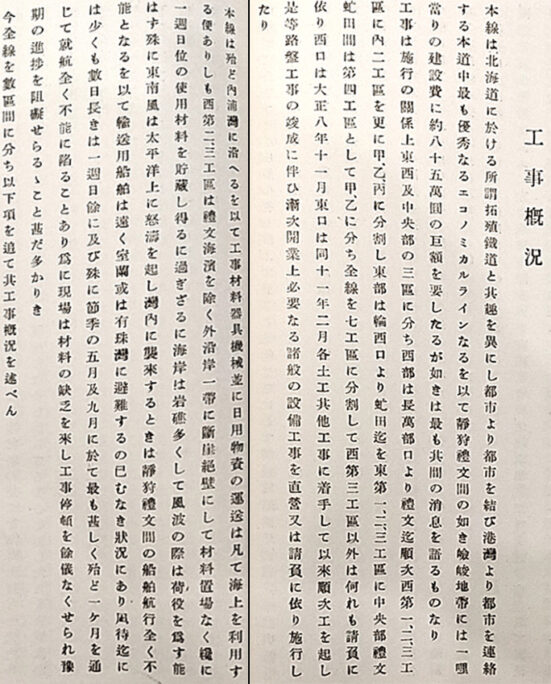 工事槪況
本線は北海道に於ける所謂拓殖鐵道と其趣を異にし都市より都市を結び港灣より都市を連絡
する本道中最も優秀なるエコノミカルラインなるを以て靜狩禮文間の如き嶮峻地帶には一哩
當りの建設費に約八十五萬圓の巨額を要したるが如きは最も其間の消息を語るものなり
工事は施行の關係上東西及中央部の三區に分ち西部は長萬部口より禮文迄順次西第一、二、三工
區に內二工區を更に甲乙丙に分割し東部は輪西口より虻田迄を東第一、二、三工區に中央部禮文
虻田間は第四工區として甲乙に分ち全線を七工區に分割して西第三工區以外は何れも請負に
依り西口は大正八年十一月東口は同十一年二月各土工其他工事に着手して以來順次工を起し
是等路盤工事の竣成に伴ひ漸次開業上必要なる諸般の設備工事を直營又は請負に依り施行し
たり
本線は殆ど內浦灣に沿へるを以て工事材料器具機械並に日用物資の運送は凡て海上を利用す
る便ありしも西第二、三工區は禮文海濱を除く外沿岸一帶に斷崖絕壁にして材料置場なく纔に
一週日位の使用材料を貯藏し得るに過ぎざるに海岸は岩礁多くして風波の際は荷役を爲す能
はず殊に東南風は太平洋上に怒濤を起し灣內に襲來するときは靜狩禮文間の船舶航行全く不
能となるを以て輸送用船舶は遠く室蘭或は有珠灣に避難するの已むなき狀況にあり凪待迄に
は少くも數日長きは一週日餘に及び殊に節季の五月及九月に於て最も甚しく殆ど一ケ月を通
じて就航全く不能に陷ることあり爲に現場は材料の缺乏を來し工事停頓を餘儀なくせられ豫
期の進捗を阻礙せらるゝこと甚だ多かりき
今全線を數區間に分ち以下項を追て其工事槪況を述べん